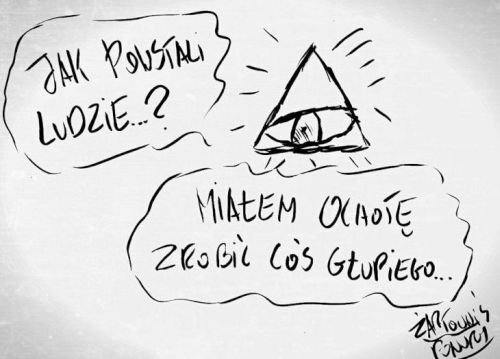 JAK POWSTALI
LUDZIE...?
MIAŁEM OCHOTĘ
ZROBIĆ COŚ GŁUPIEGO...
ŻARTOWNIŚ
PONURY